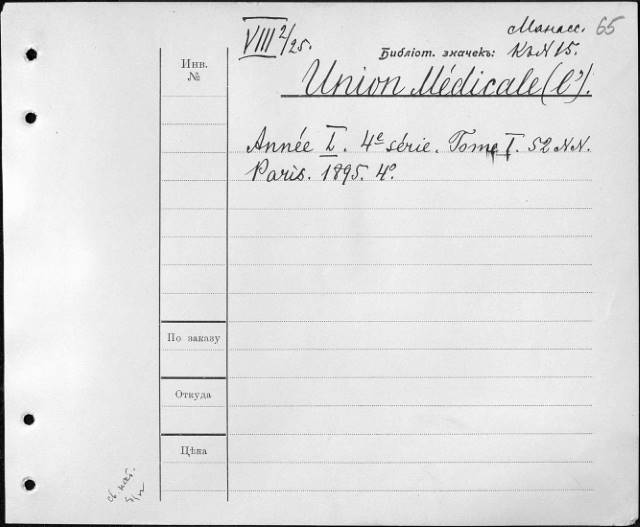 VIII 2/25.
Манасс. 65
Библіот. значекъ: КъN 15.
Инв. №
Union Médicale (l').
Année I. 4e série. Tome I. 52 NN.
Paris. 1895. 4o.
По заказу
Откуда
Цѣна